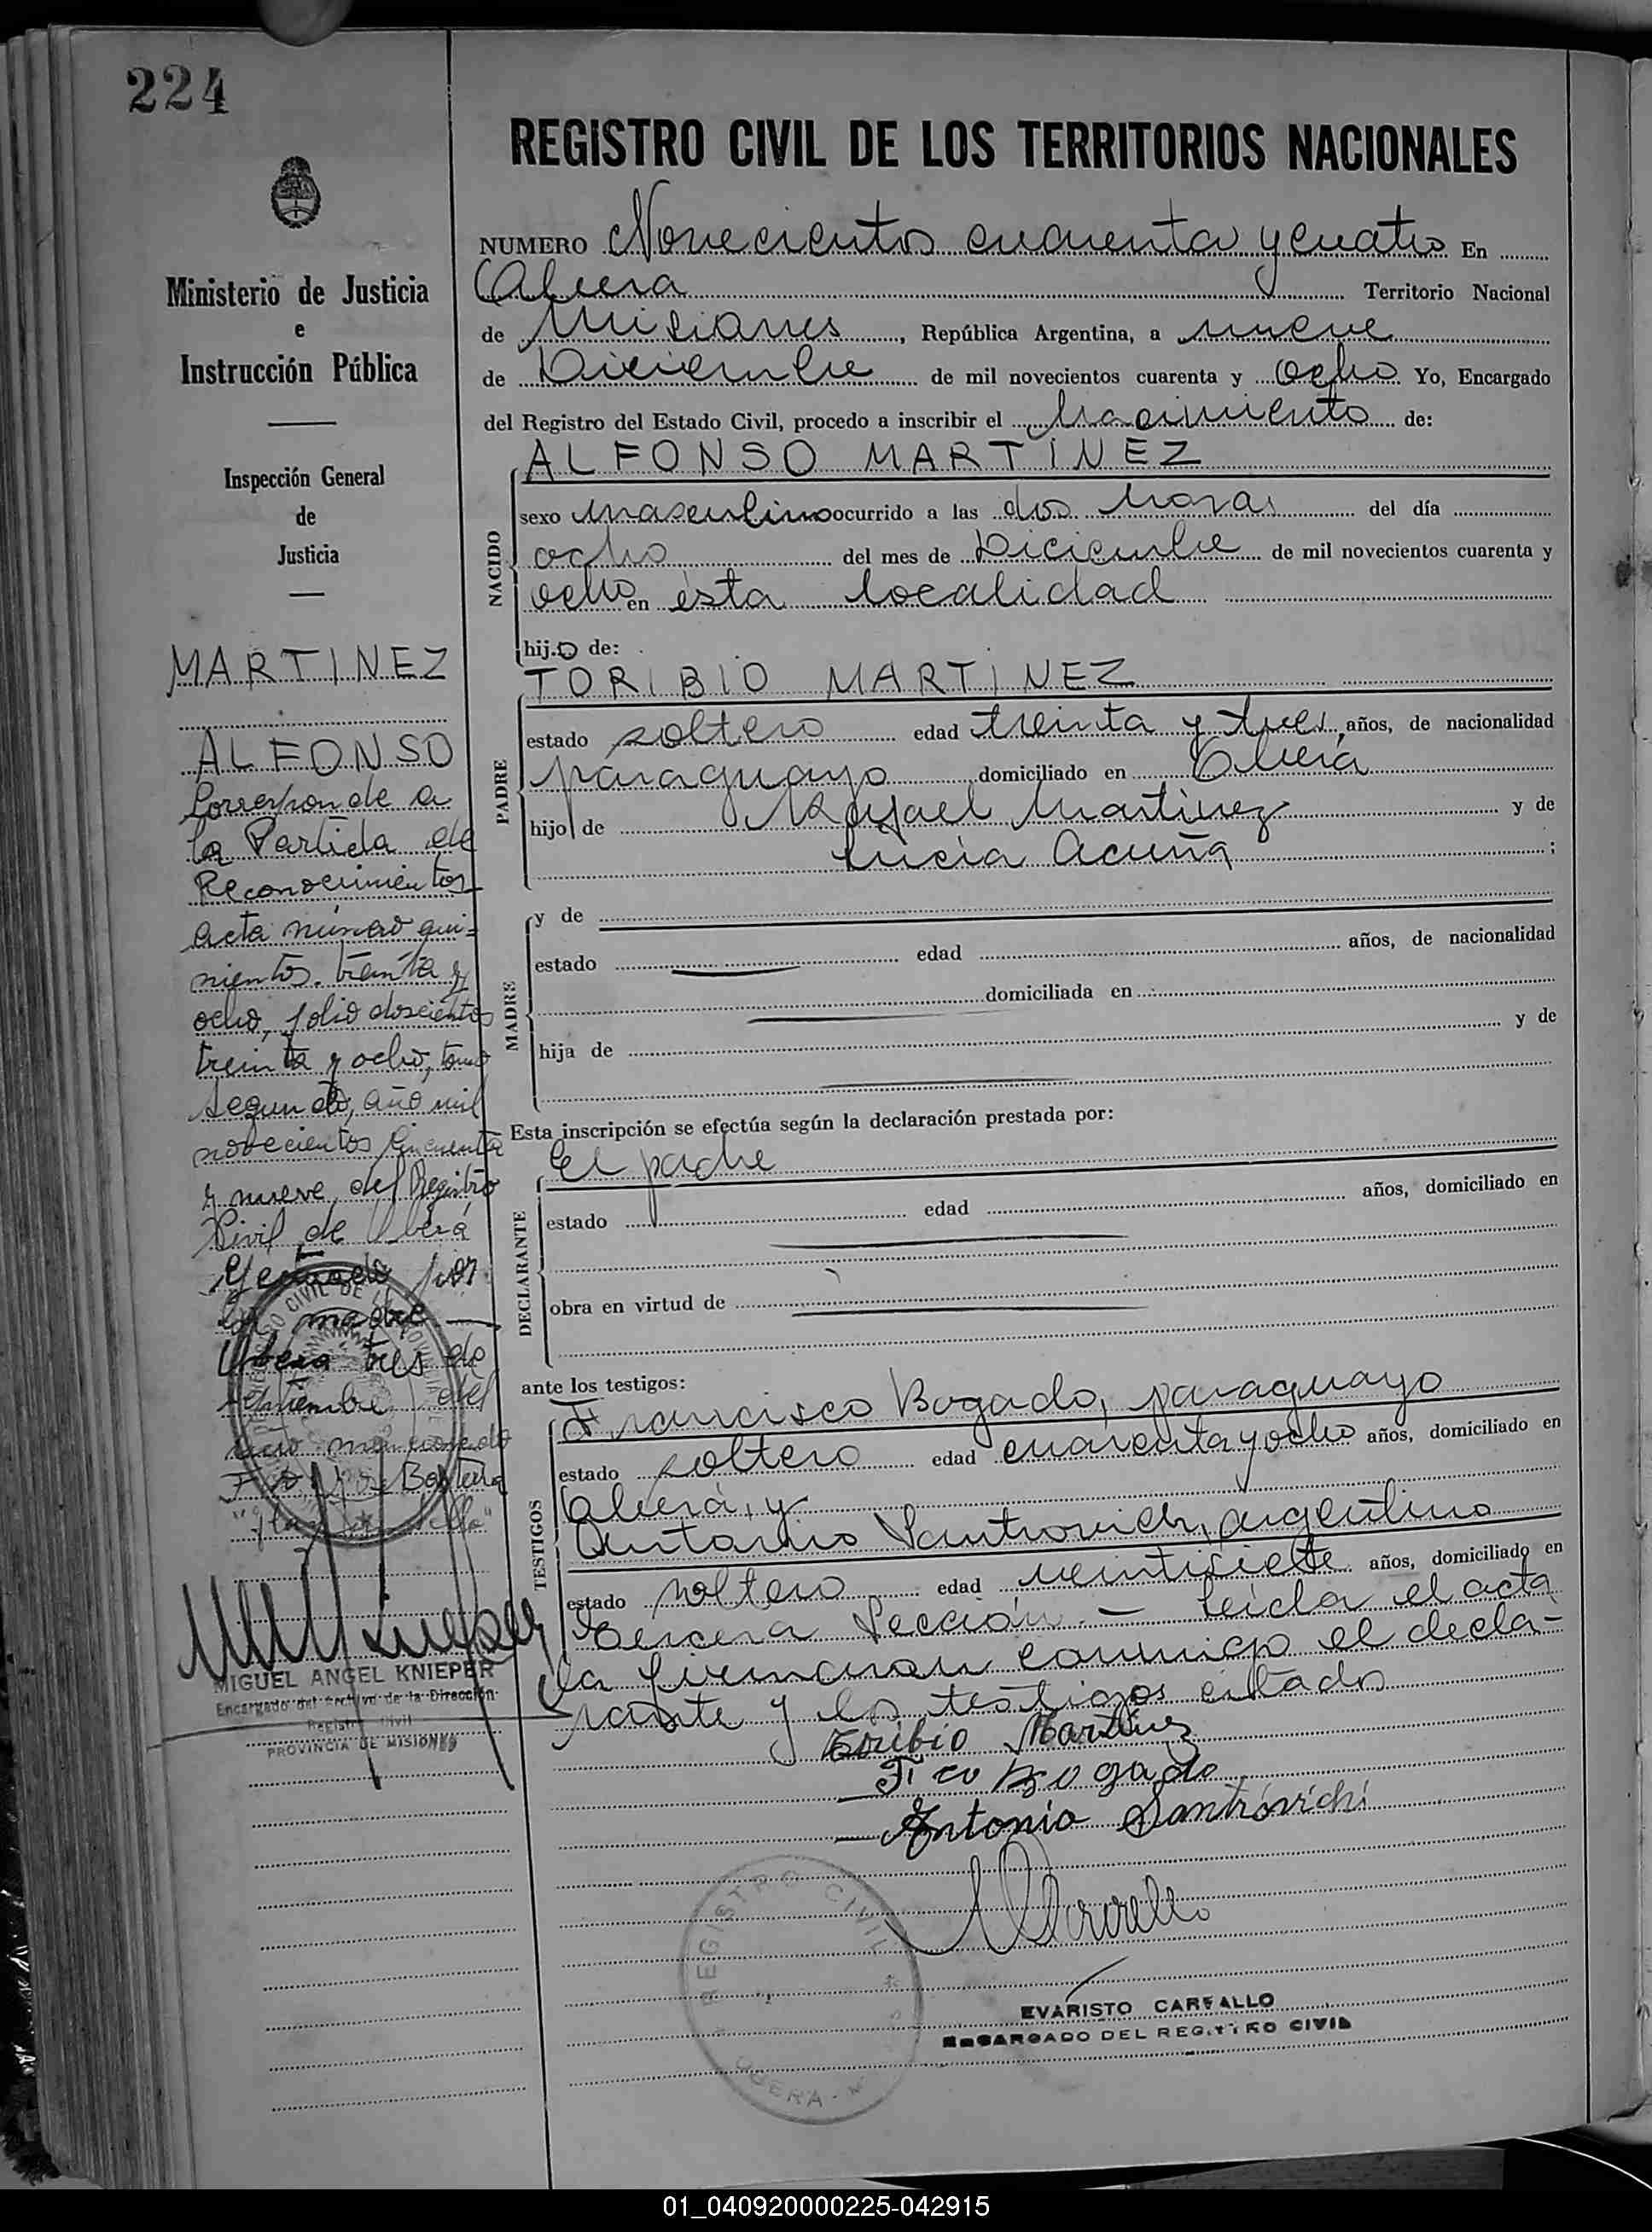 224
Ministerio de Justicia
e
Instrucción Pública
Inspección General
de
Justicia
MARTINEZ
ALFONSO
Corresponde a
la Partida de
Reconocimientos
acta número qui-
nientos treinta y
ocho, folio doscientos
treinta y ocho, tomo
segundo, año mil
novecientos cincuenta
y nueve, del Registro
Civil de Oberá
por
la madre
Oberá tres de
septiembre del
año mencionado
MIGUEL ANGEL KNIEPER
Encargado del Archivo de la Dirección
Registro Civil
PROVINCIA DE MISIONES
REGISTRO CIVIL DE LOS TERRITORIOS NACIONALES
NUMERO Novecientos cuarenta y cuatro En
Oberá Territorio Nacional
de Misiones, República Argentina, a nueve
de Diciembre de mil novecientos cuarenta y ocho Yo, Encargado
del Registro del Estado Civil, procedo a inscribir el Nacimiento de:
ALFONSO MARTINEZ
NACIDO
sexo masculino ocurrido a las dos horas del día
ocho del mes de Diciembre de mil novecientos cuarenta y
ocho en ésta localidad
hijo de:
TORIBIO MARTINEZ
PADRE
estado soltero edad treinta y tres años, de nacionalidad
paraguayo domiciliado en Oberá
hijo de Rafael Martinez y de
Lucia Acuña ;
MADRE
y de
estado edad años, de nacionalidad
domiciliada en
hija de y de
Esta inscripción se efectúa según la declaración prestada por:
El padre
DECLARANTE
estado edad años, domiciliado en
obra en virtud de
ante los testigos:
Francisco Bogado, paraguayo
TESTIGOS
estado soltero edad cuarenta y ocho años, domiciliado en
Oberá, y
Antonio Santrovich, argentino
estado soltero edad veintisiete años, domiciliado en
Tercera Sección.- Leída el acta
la firmaron conmigo el decla-
rante y los testigos citados
Toribio Martinez
Fco Bogado
Antonio Santrovichi
REGISTRO CIVIL
OBERA
EVARISTO CARVALLO
ENCARGADO DEL REGISTRO CIVIL
01_040920000225-042915